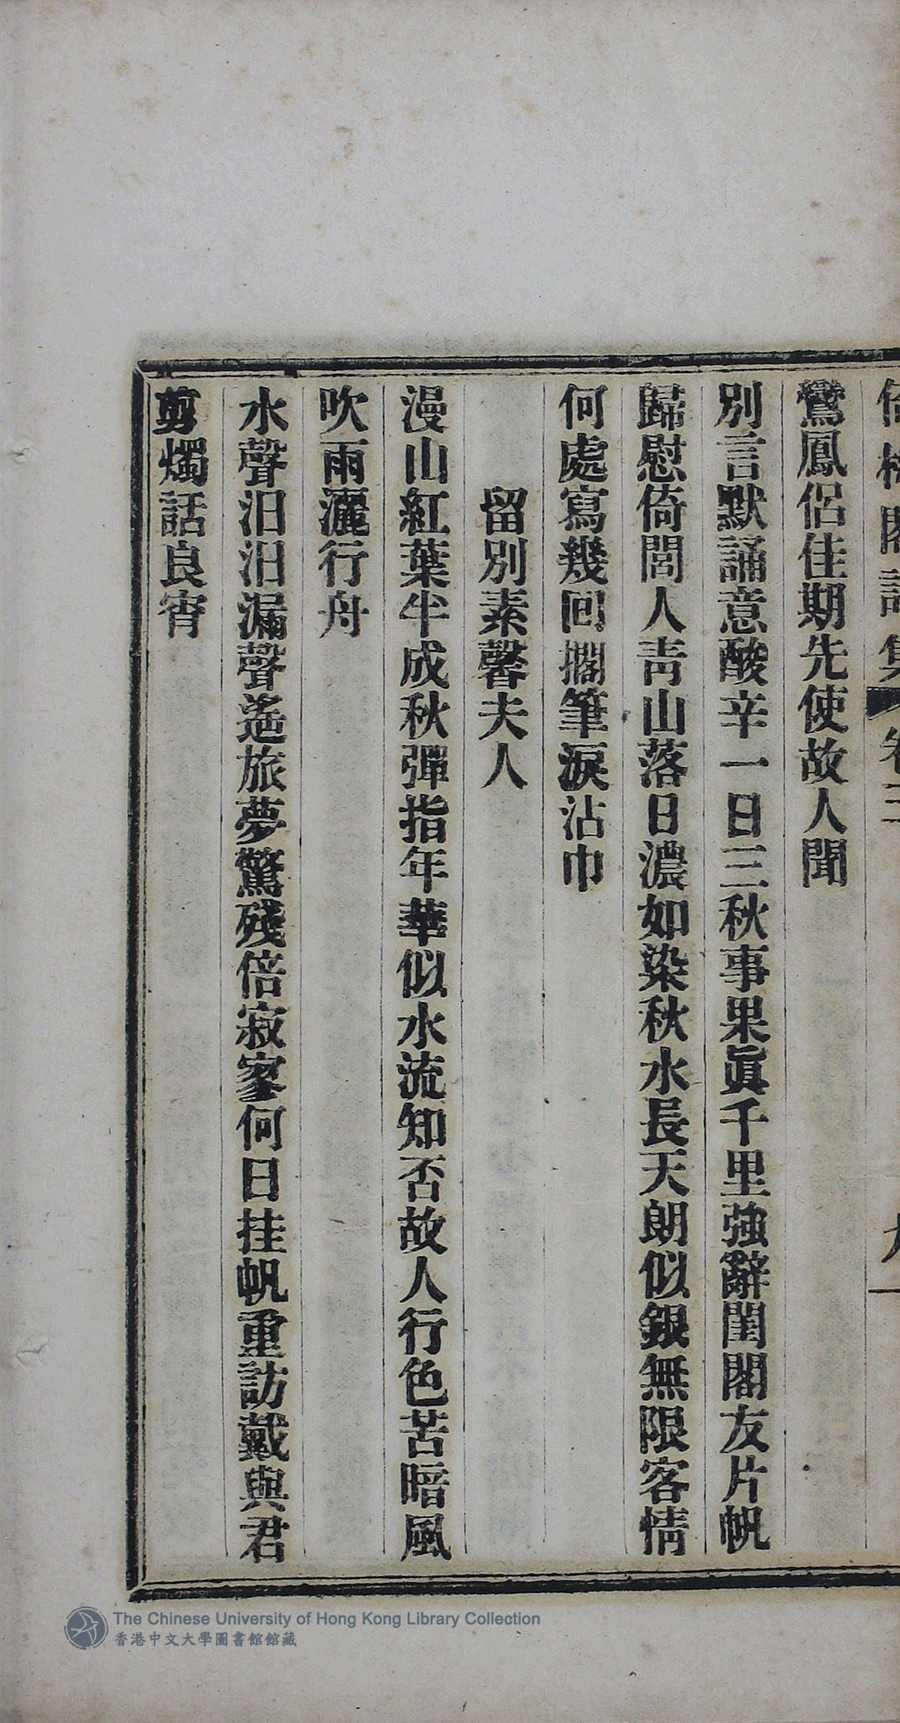 倚梅閣詩集 卷三 九
鸞鳳侶佳期先使故人聞
別言默誦意酸辛一日三秋事果眞千里強辭閨閣友片帆
歸慰倚閭人靑山落日濃如染秋水長天朗似銀無限客情
何處寫幾回擱筆淚沾巾
留別素馨夫人
漫山紅葉半成秋彈指年華似水流知否故人行色苦暗風
吹雨灑行舟
水聲汩汩漏聲遙旅夢驚殘倍寂寥何日挂帆重訪戴與君
剪燭話良宵
The Chinese University of Hong Kong Library Collection
香港中文大學圖書館館藏